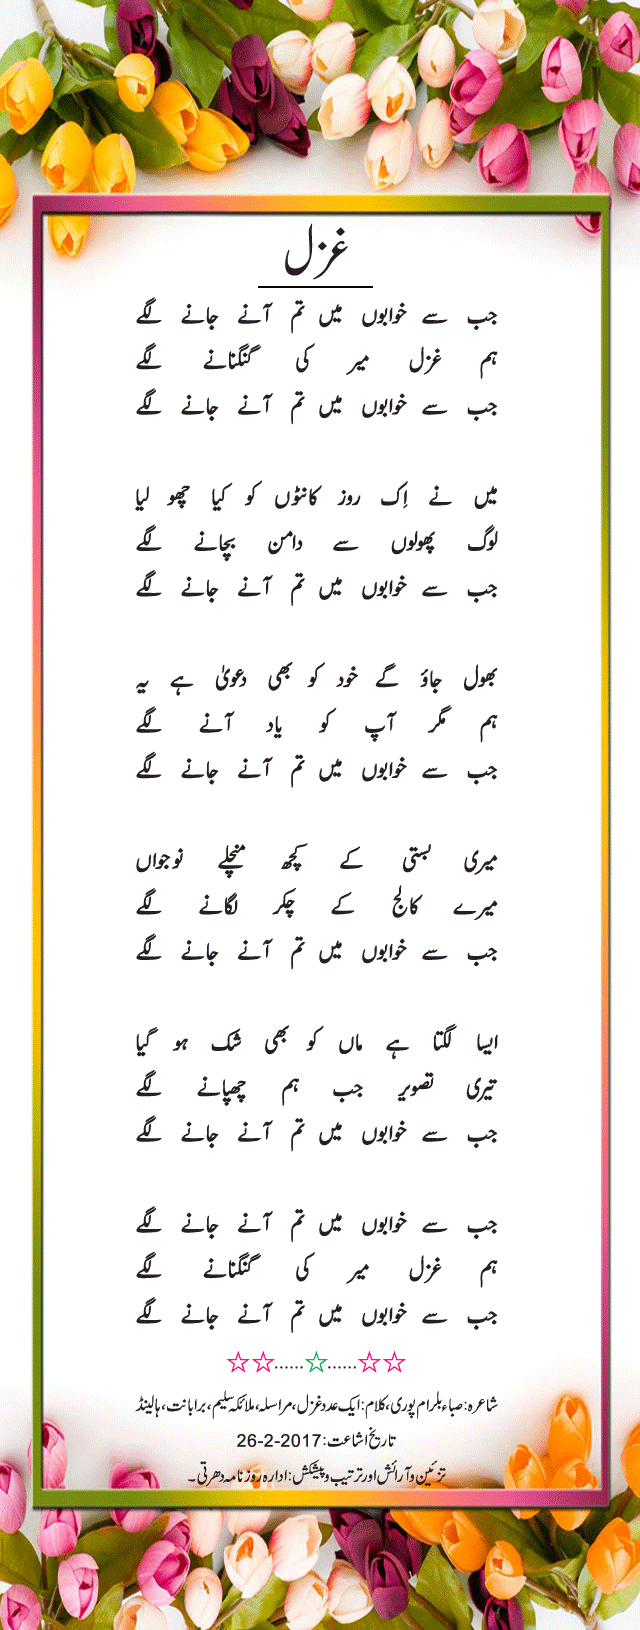 غزل
جب سے خوابوں میں تم آنے جانے لگے
ہم غزل میر کی گنگنانے لگے
جب سے خوابوں میں تم آنے جانے لگے
میں نے اِک روز کانٹوں کو کیا چھو لیا
لوگ پھولوں سے دامن بچانے لگے
جب سے خوابوں میں تم آنے جانے لگے
بھول جاؤ گے خود کو بھی دعویٰ ہے یہ
ہم مگر آپ کو یاد آنے لگے
جب سے خوابوں میں تم آنے جانے لگے
میری بستی کے کچھ منچلے نوجواں
میرے کالج کے چکر لگانے لگے
جب سے خوابوں میں تم آنے جانے لگے
ایسا لگتا ہے ماں کو بھی شک ہو گیا
تیری تصویر جب ہم چھپانے لگے
جب سے خوابوں میں تم آنے جانے لگے
جب سے خوابوں میں تم آنے جانے لگے
ہم غزل میر کی گنگنانے لگے
جب سے خوابوں میں تم آنے جانے لگے
☆☆......☆......☆☆
شاعرہ: صباء بلرام پوری، کلام: ایک عدد غزل، مراسلہ، ملائکہ سلیم، برابانت، ہالینڈ
تاریخ اشاعت: 26-2-2017
تزئین و آرائش اور ترتیب و پیشکش: ادارہ روزنامہ دھرتی۔